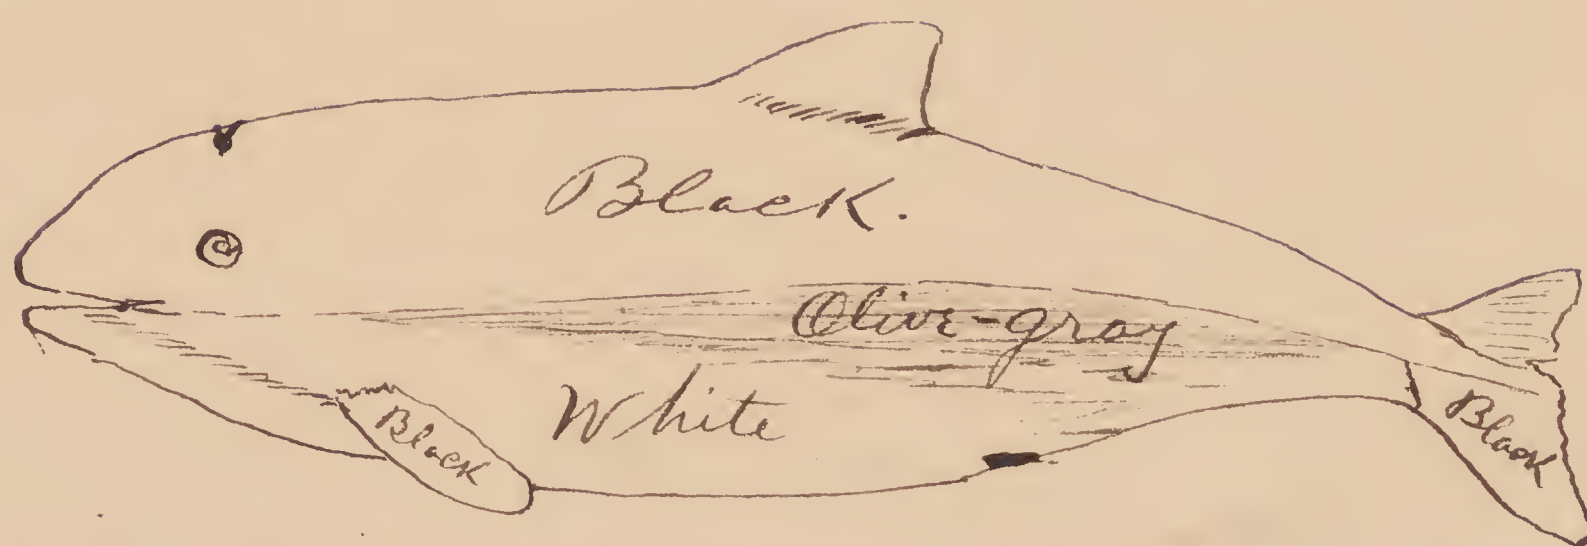 Black.
Olive-gray
White
Black
Black